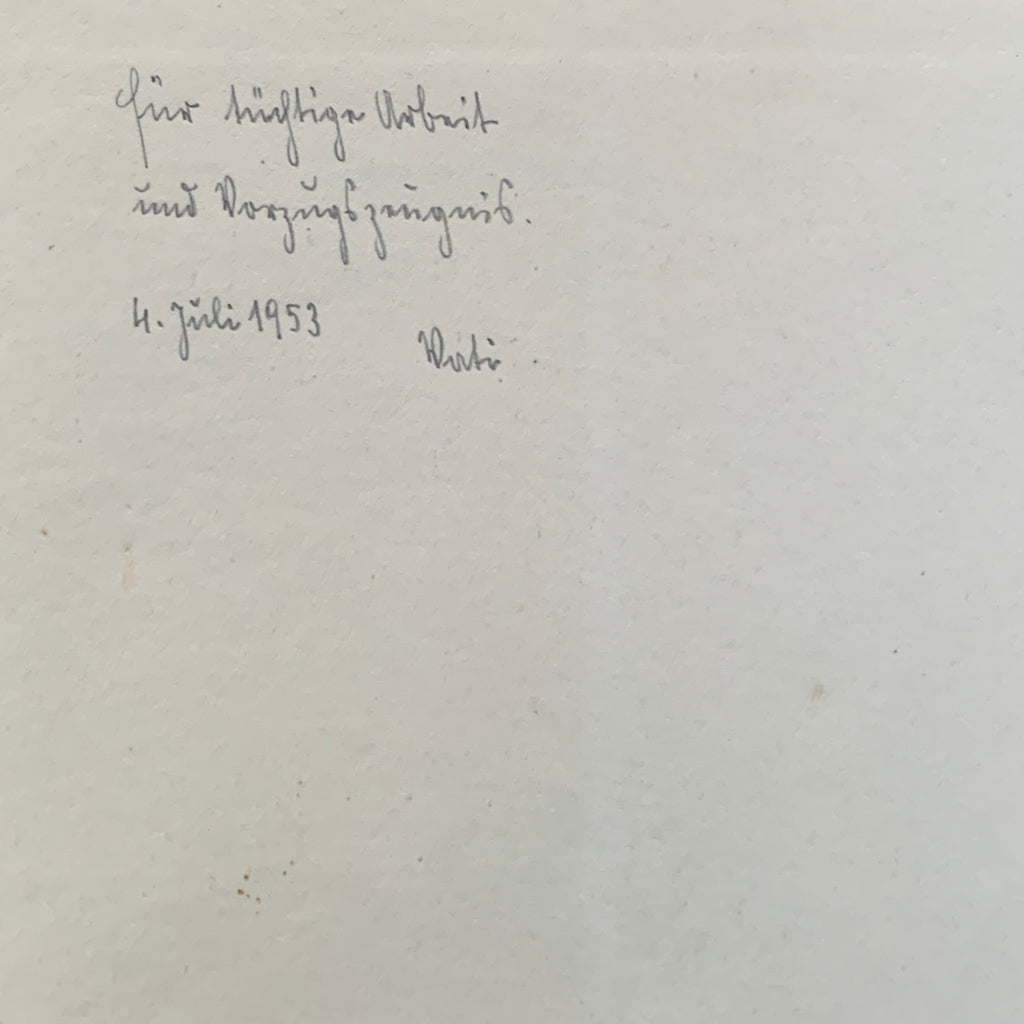 für tüchtige Arbeit
und Vorzugszeugnis.
4. Juli 1953
Vati